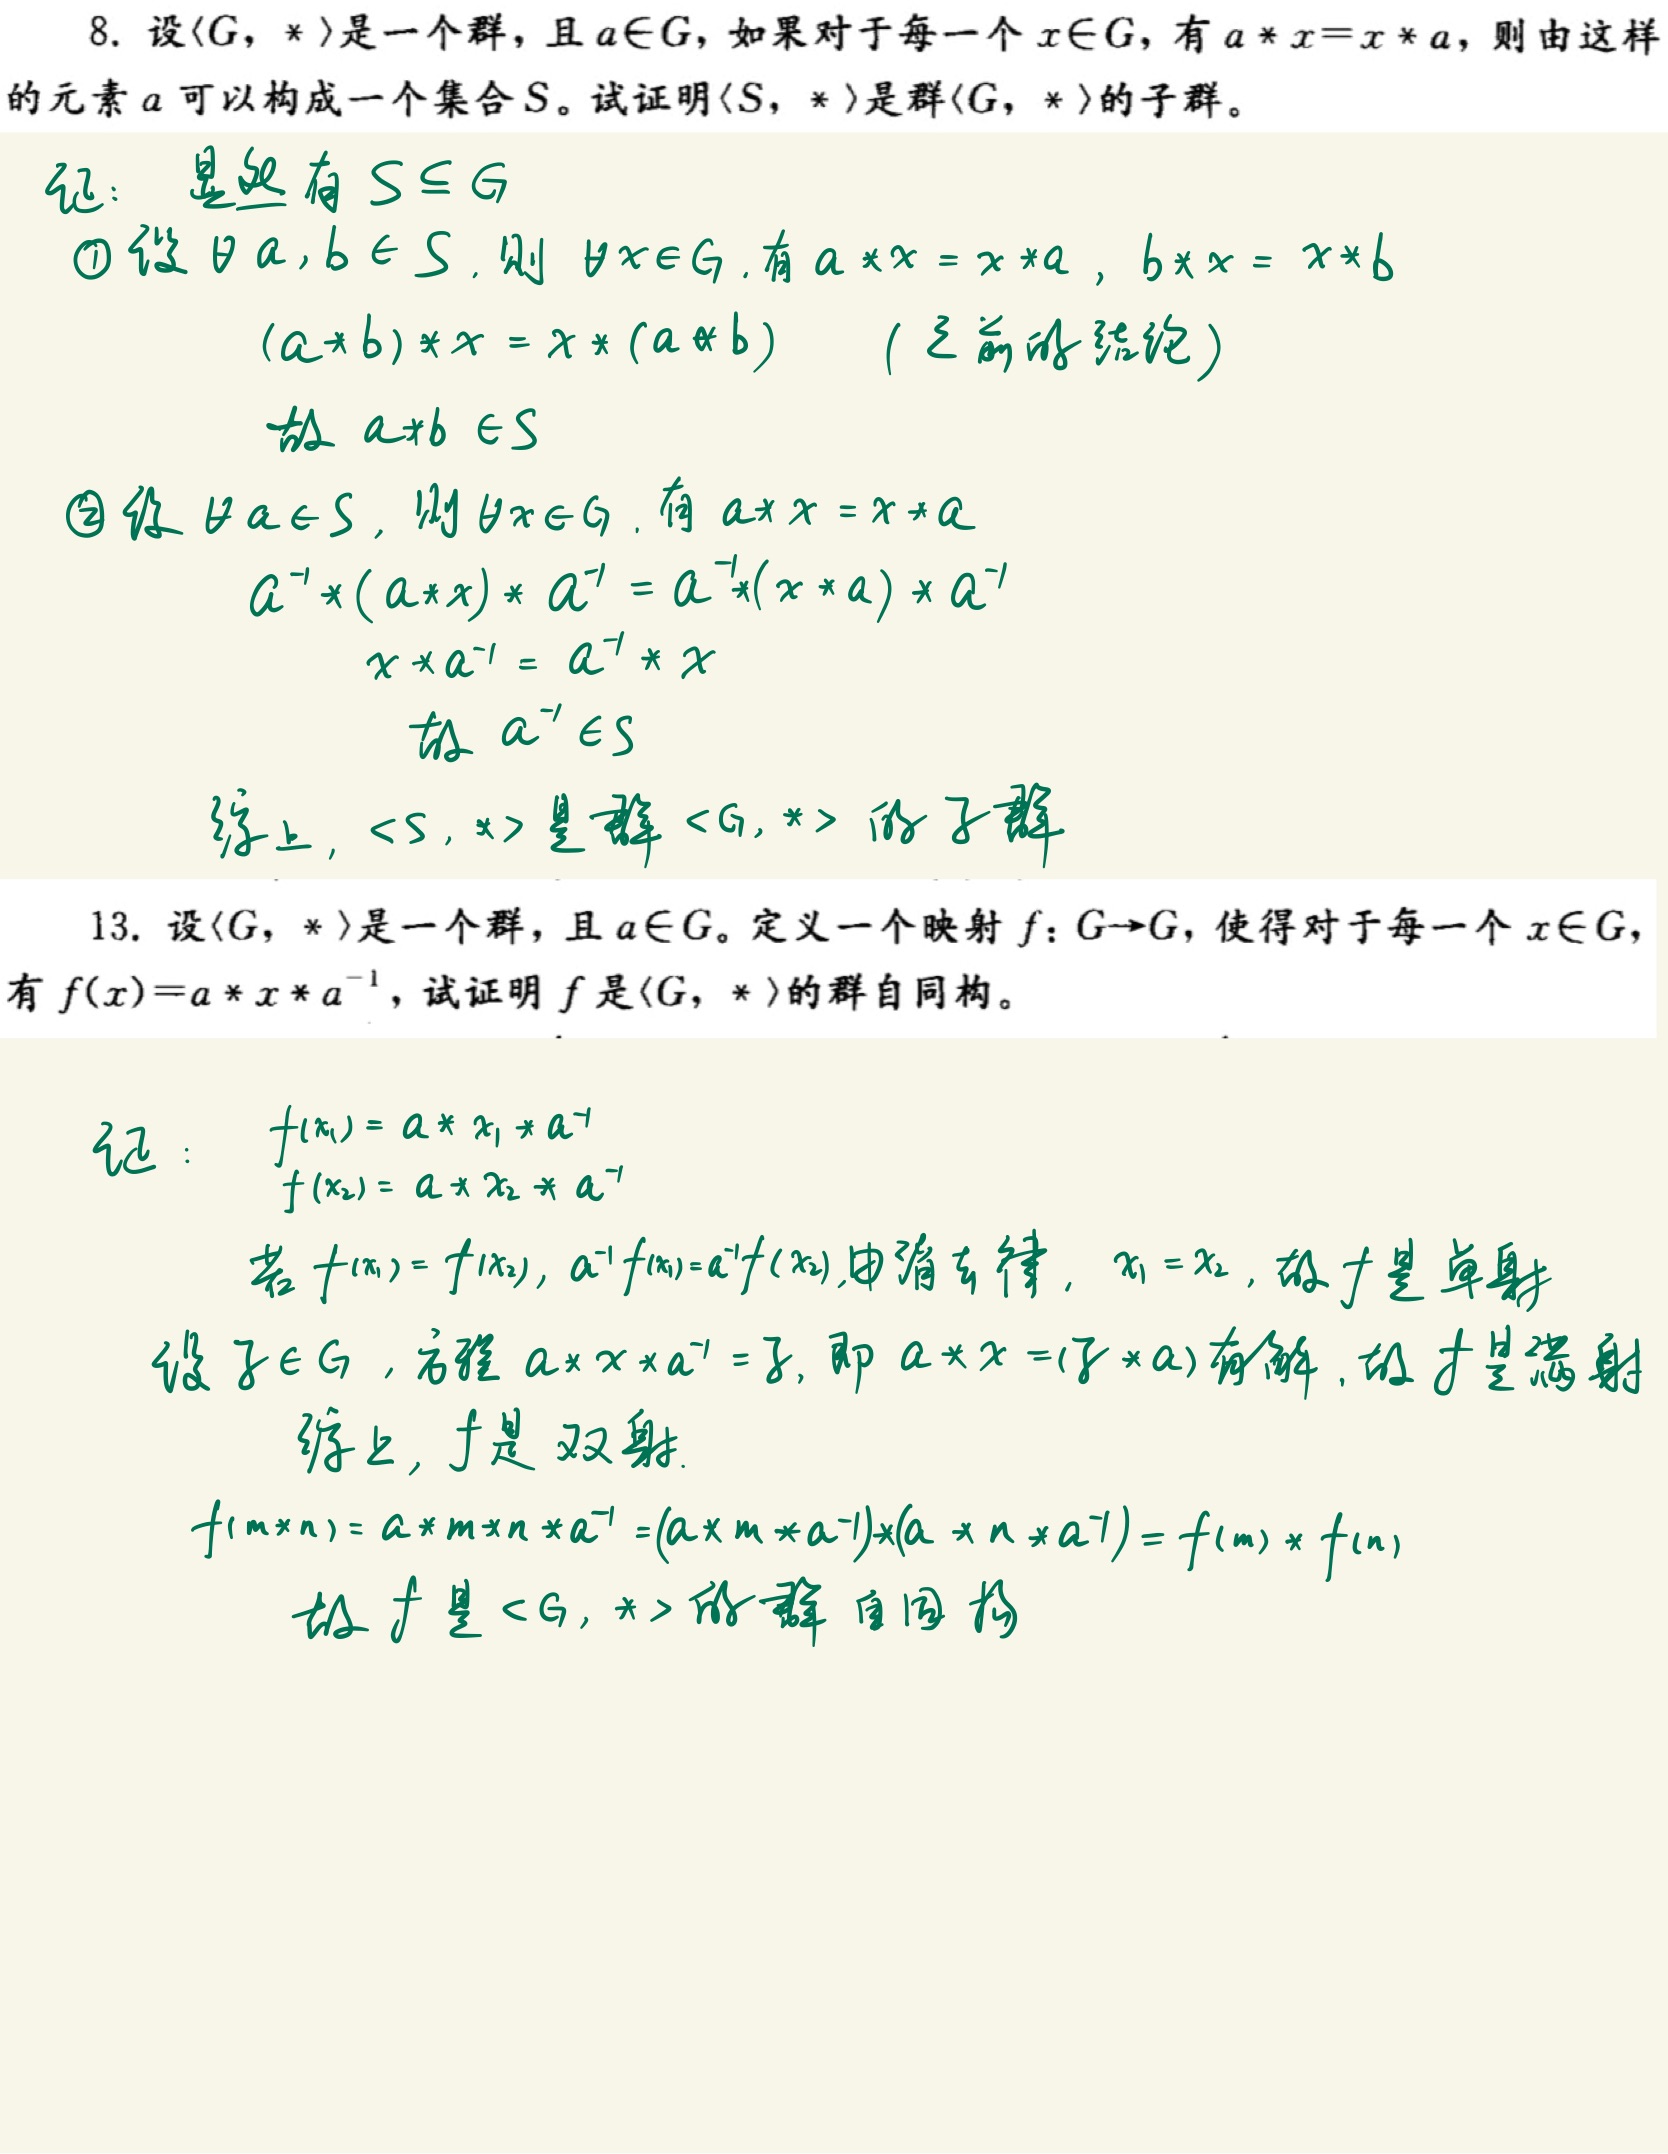 8. 设〈G, *〉是一个群，且 a∈G，如果对于每一个 x∈G，有 a * x=x * a，则由这样
的元素 a 可以构成一个集合 S。试证明〈S, *〉是群〈G, *〉的子群。
证: 显然有 S ⊆ G
① 设 ∀ a, b ∈ S. 则 ∀x∈G. 有 a * x = x * a, b * x = x * b
(a * b) * x = x * (a * b) (之前的结论)
故 a*b ∈S
② 设 ∀ a ∈ S, 则 ∀x∈G. 有 a* x = x * a
a⁻¹ * (a * x) * a⁻¹ = a⁻¹*(x * a) * a⁻¹
x * a⁻¹ = a⁻¹ * x
故 a⁻¹ ∈S
综上, <S, *> 是群 <G, *> 的子群
13. 设〈G, *〉是一个群，且 a∈G。定义一个映射 f: G→G，使得对于每一个 x∈G，
有 f(x)=a * x * a⁻¹，试证明 f 是〈G, *〉的群自同构。
证: f(x₁) = a * x₁ * a⁻¹
f(x₂) = a * x₂ * a⁻¹
若 f(x₁) = f(x₂), a⁻¹ f(x₁) = a⁻¹ f(x₂), 由消去律, x₁ = x₂, 故 f 是单射
设 z ∈ G, 方程 a * x * a⁻¹ = z, 即 a * x = (z * a) 有解. 故 f 是满射
综上, f是双射.
f(m*n) = a * m * n * a⁻¹ = (a * m * a⁻¹)*(a * n * a⁻¹) = f(m) * f(n)
故 f 是 <G, *> 的群自同构